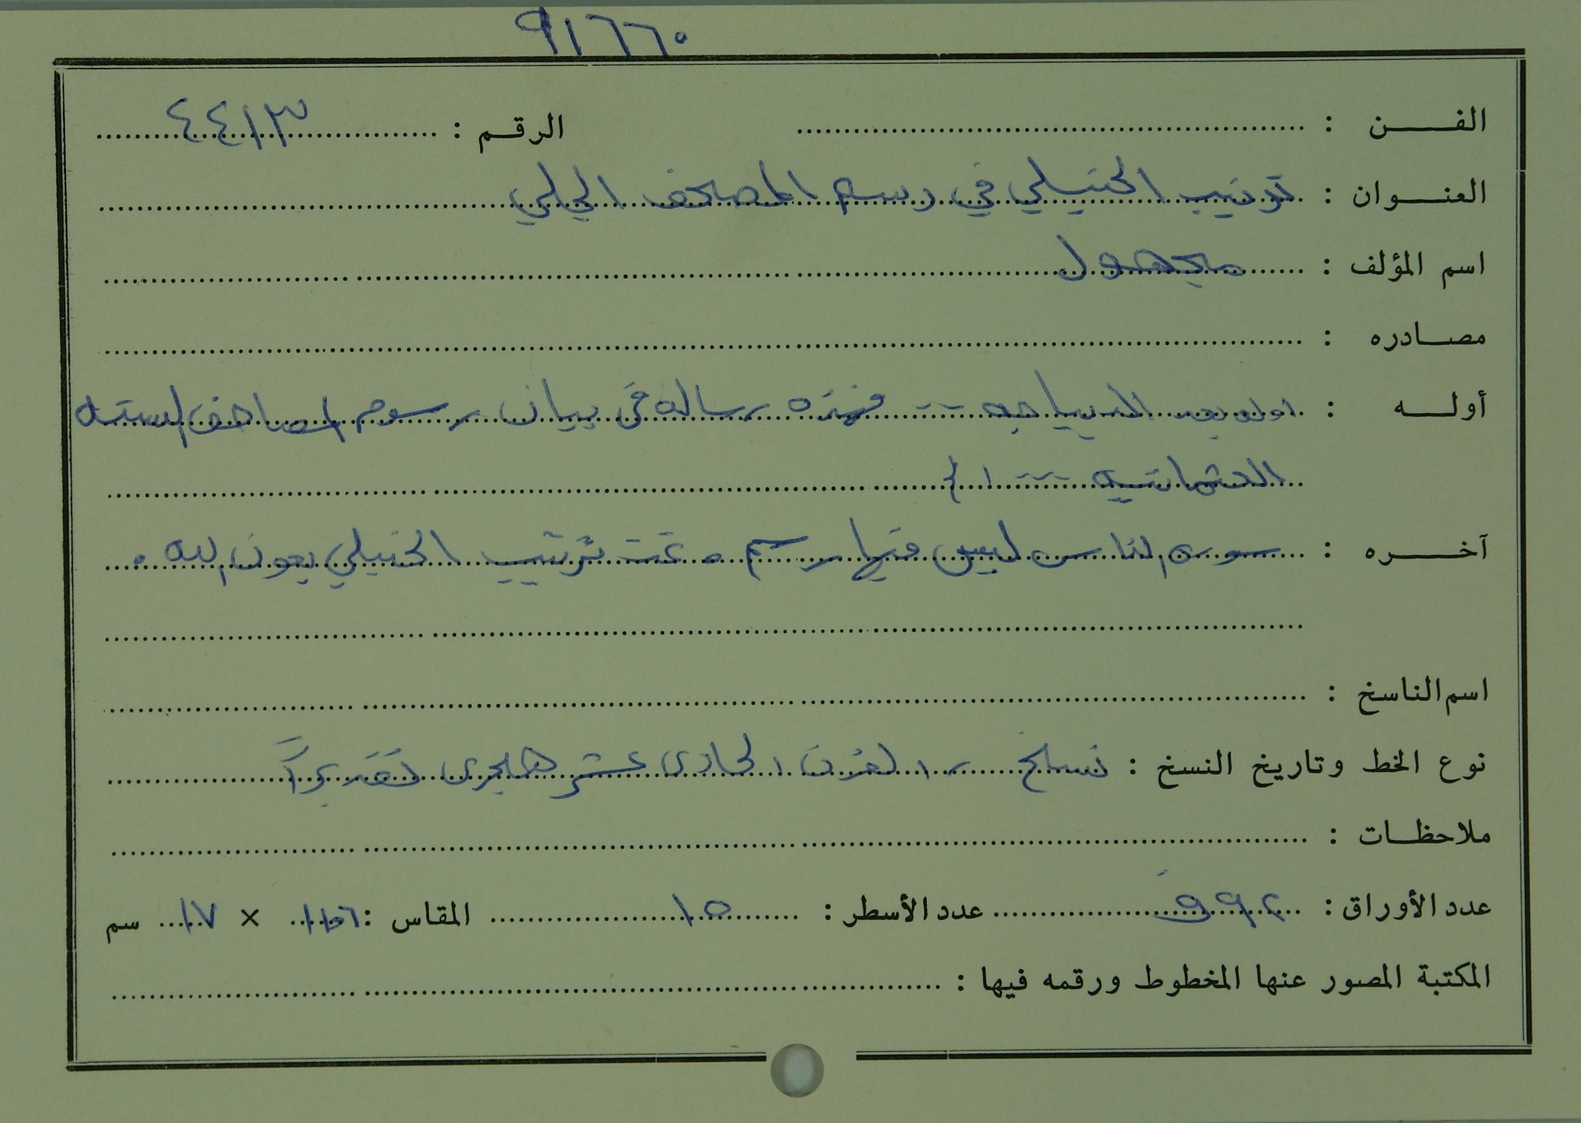 ٩١٦٦٠
الفن : الرقم : ٤٤١٣
العنوان : ترتيب الحنبلي في رسم المصحف الجلي
اسم المؤلف : مجهول
مصادره :
أوله : اوله بعد الديباجه -- فهذه رسالة في بيان رسوم المصاحف الستة
العثمانيه --- ا هـ
آخره : سورة الناس ليس فيها رسم . تمت ترتيب الحنبلي بعون الله .
اسم الناسخ :
نوع الخط وتاريخ النسخ : نسخ ر القرن الحادى عشر هجرى تقديراً
ملاحظات :
عدد الأوراق : عدد الأسطر : ١٥ المقاس : × ١٧ سم
المكتبة المصور عنها المخطوط ورقمه فيها :